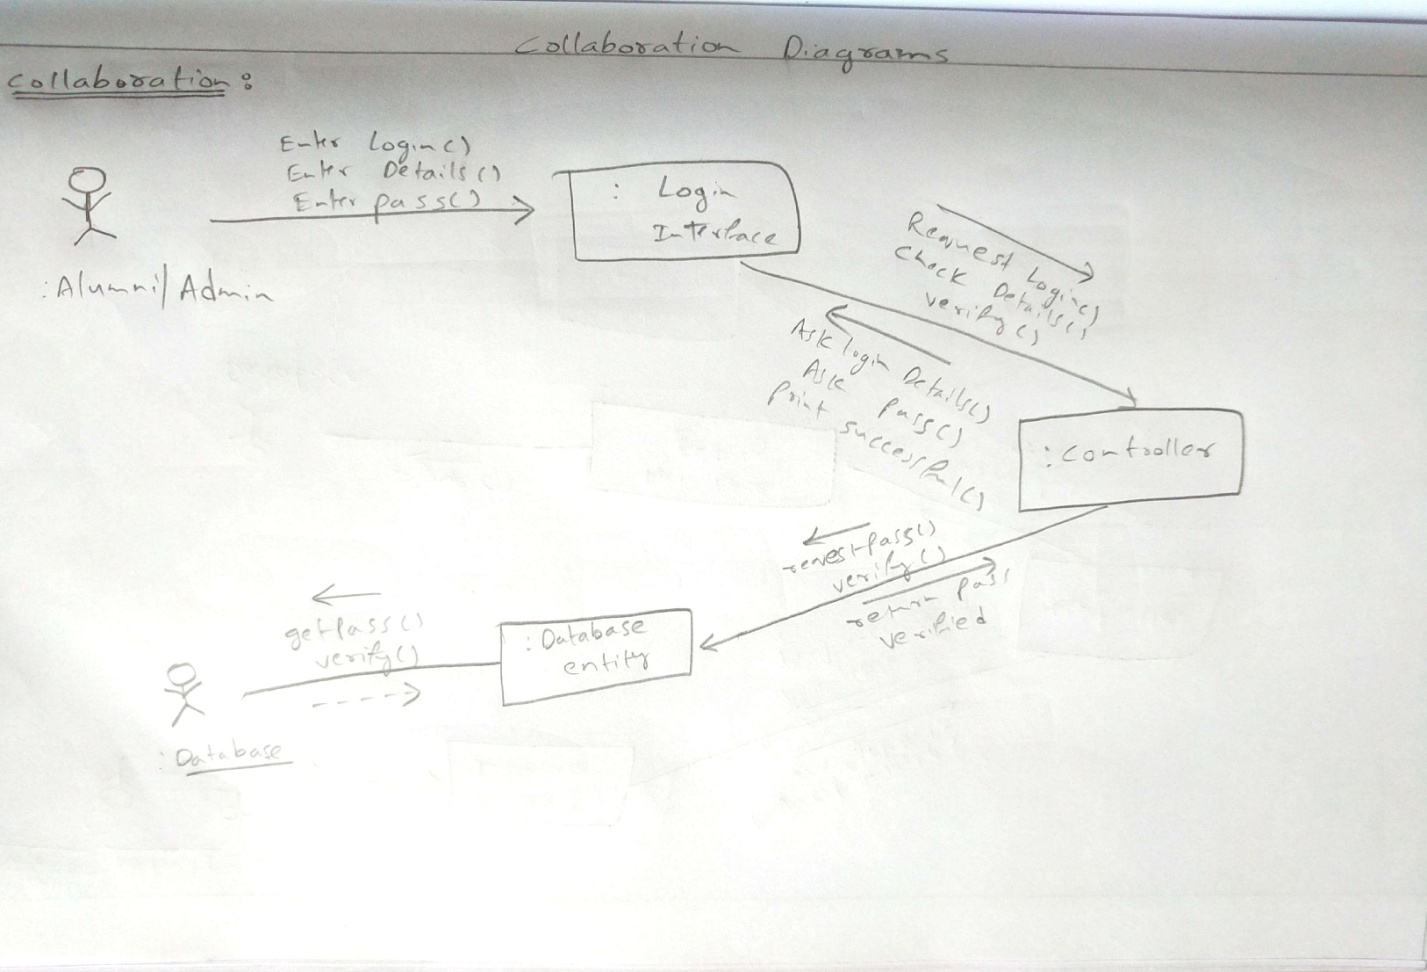 Collaboration Diagrams
Collaboration:
Enter Login()
Enter Details()
Enter pass()
: Login
Interface
:Alumni/Admin
Request Login()
Check Details()
verify()
Ask login Details()
Ask pass()
Print successful()
:Controller
verify()
return pass
verified
getpass()
verify()
:Database
entity
:Database